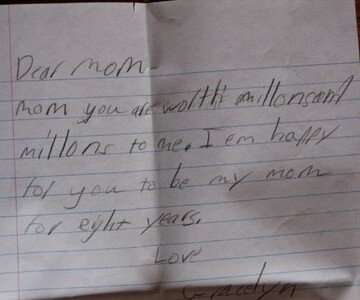 Dear mom
mom you are worth millons and
millons to me. I em happy
for you to be my mom
for eight years.
Love